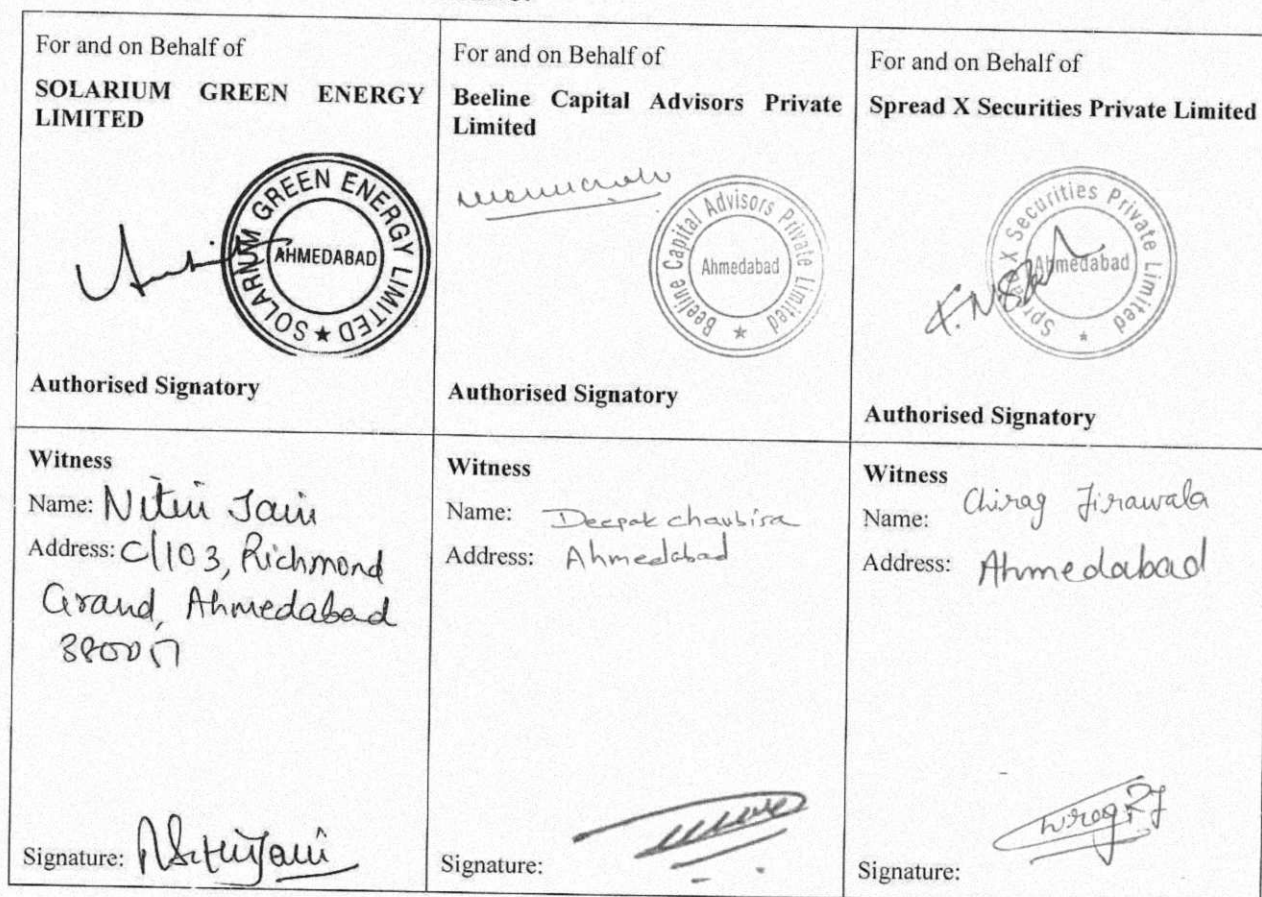 For and on Behalf of
SOLARIUM GREEN ENERGY
LIMITED
SOLARIUM GREEN ENERGY LIMITED
AHMEDABAD
Authorised Signatory
For and on Behalf of
Beeline Capital Advisors Private
Limited
Beeline Capital Advisors Private Limited
Ahmedabad
Authorised Signatory
For and on Behalf of
Spread X Securities Private Limited
Spread X Securities Private Limited
Ahmedabad
Authorised Signatory
Witness
Name: Nitin Jain
Address: C/103, Richmond
Grand, Ahmedabad
Signature: Nitin Jain
Witness
Name: Deepak chaubisa
Address: Ahmedabad
Signature:
Witness
Name: Chirag Jirawala
Address: Ahmedabad
Signature: